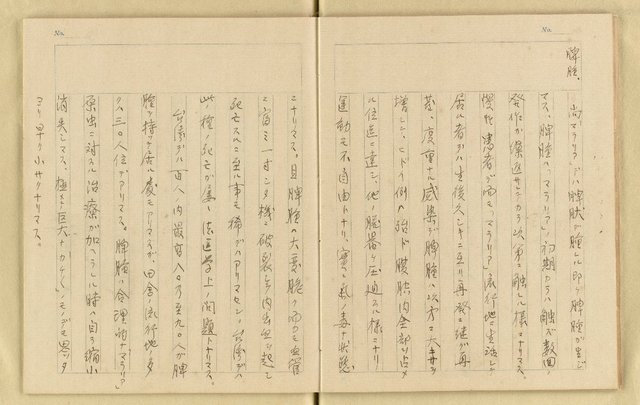 No.
脾腫、
尚「マラリア」デハ脾臓ガ腫レル即チ脾腫ガ生ジ
マス、脾腫ハ「マラリア」初期カラハ触レズ数回ノ
発作ガ繰返サレテカラ次第ニ触レル様ニナリマス、
慢性患者ガ「マラリア」流行地ニ生活シテ
居ル者ガ生後久シキニ亘リ再発に継グ再
発、度重ナル感染デ脾腫ハ次第ニ大キサヲ
増シテ、ヒドイ例ハ殆ド腹腔内全部ヲ占メ
ル位迄ニ達シ他ノ臓器ヲ圧迫スル様ニナリ
運動モ不自由トナリ、実ニ気ノ毒ナ状態
No.
ニナリマス。且脾腫ノ大変脆ク而カモ血管
ニ富ミ一寸シタ機ニ破裂シテ内出血ヲ起シ
死亡スルニ至ル事モ稀デハアリマセン。台湾デハ
此ノ種ノ死亡ガ屡々法医学上ノ問題トナリマス。
台湾デハ百人ノ内最高八〇乃至九〇人ガ脾
腫ヲ持ツテ居ル処モアリマスガ、田舎ノ流行地ノ多
クハ三〇人位デアリマス。脾腫ハ合理的ナ「マラリア」
原虫ニ対スル治療ガ加ヘラレル時ハ自ラ縮小
消失シマス、極メテ巨大ナカタイモノデモ思ツタ
ヨリ早ク小サクナリマス。